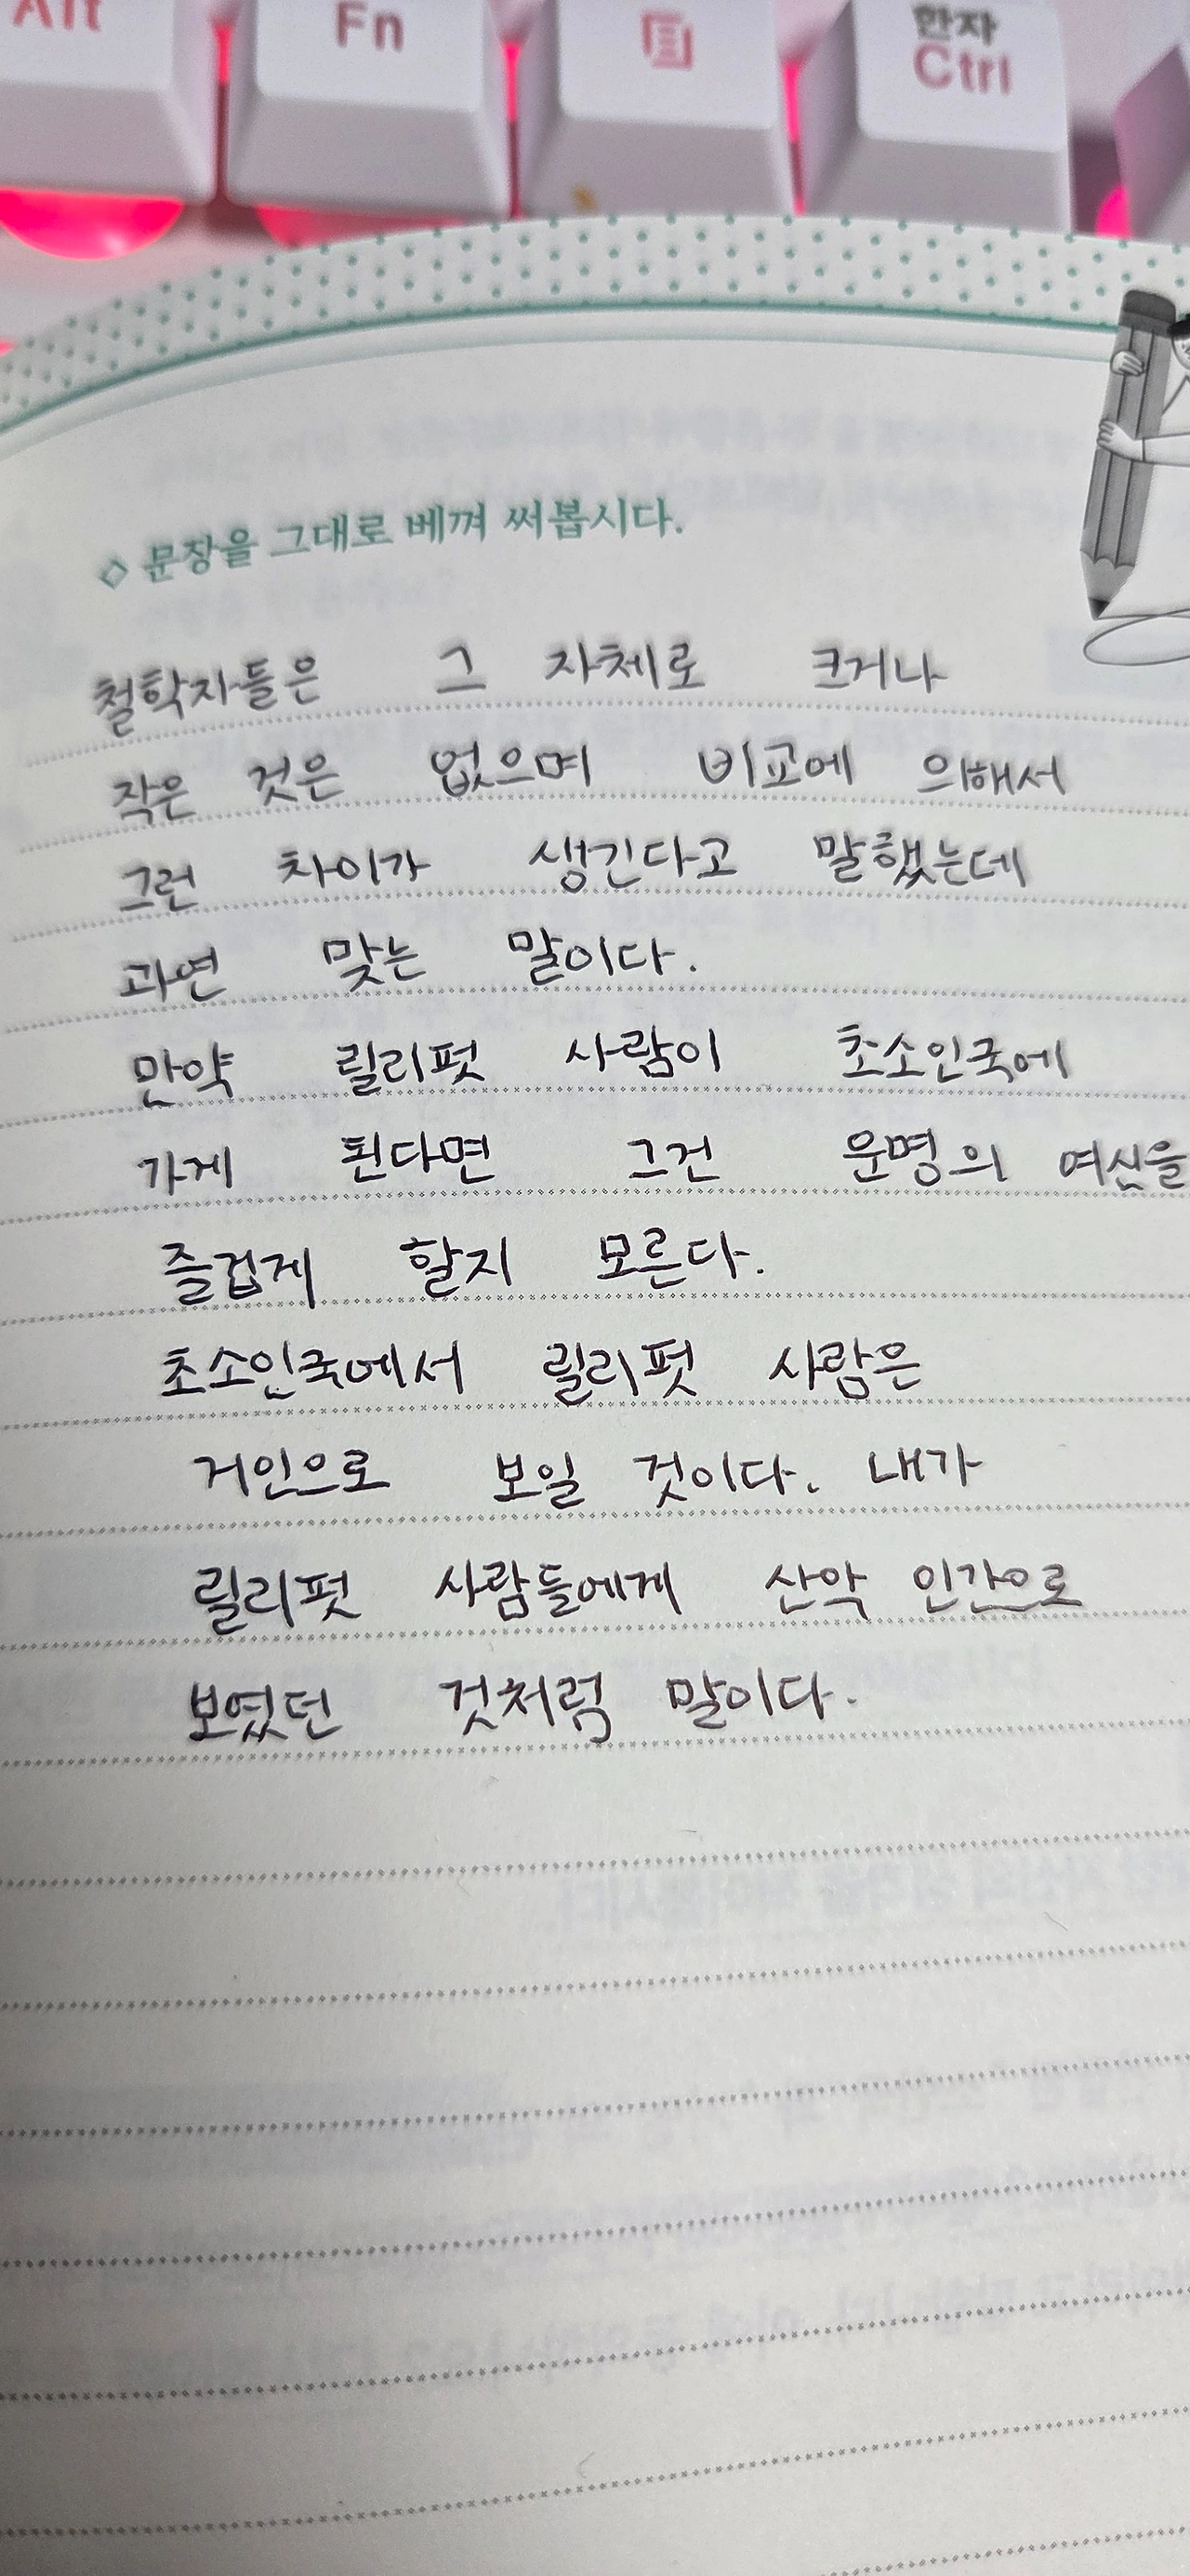 Alt Fn 한자
Ctrl
◇ 문장을 그대로 베껴 써봅시다.
철학자들은 그 자체로 크거나
작은 것은 없으며 비교에 의해서
그런 차이가 생긴다고 말했는데
과연 맞는 말이다.
만약 릴리펏 사람이 초소인국에
가게 된다면 그건 운명의 여신을
즐겁게 할지 모른다.
초소인국에서 릴리펏 사람은
거인으로 보일 것이다. 내가
릴리펏 사람들에게 산악 인간으로
보였던 것처럼 말이다.